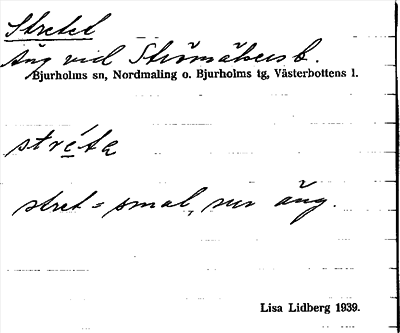 Stretet
Äng vid Strömåkers b.
Bjurholms sn, Nordmaling o. Bjurholms tg, Västerbottens l.
stréta
stret = smal, sur äng.
Lisa Lidberg 1939.